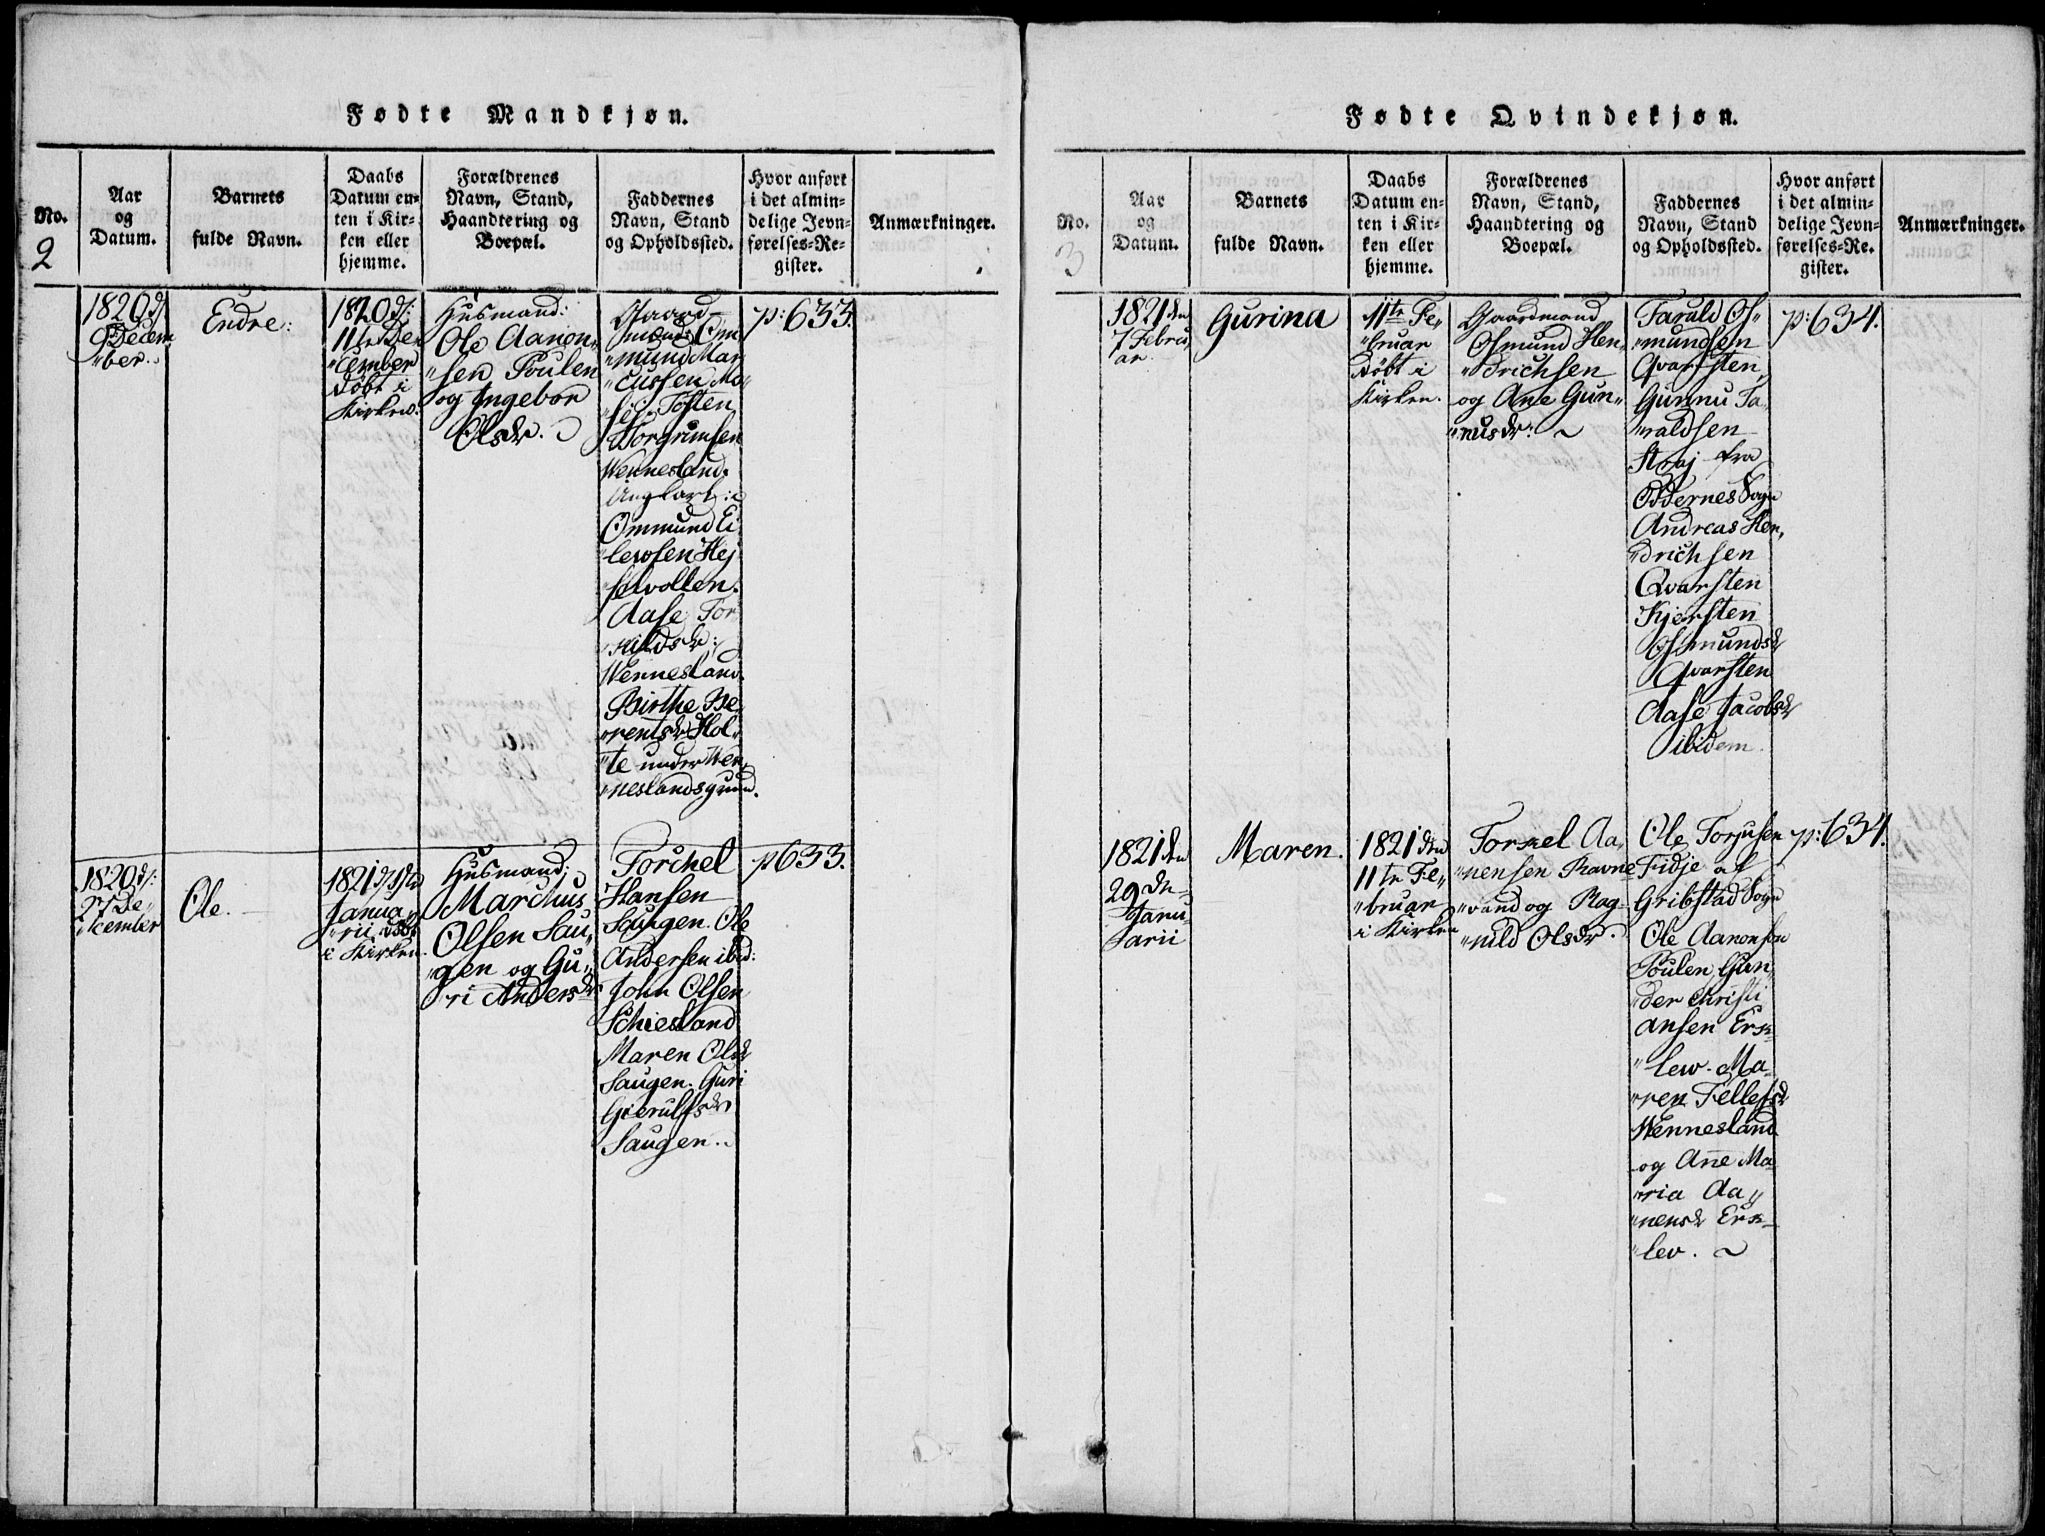 Fødte Mandkjøn.
No.
2
Aar
og
Datum.
Barnets
fulde Navn.
Daabs
Datum en-
ten i Kir-
ken eller
hjemme.
Forældrenes
Navn, Stand,
Haandtering og
Boepæl.
Faddernes
Navn, Stand
og Opholdssted.
Hvor anført
i det almin-
delige Jevn-
førelses-Re-
gister.
Anmærkninger.
1820 d:
9 Decem
"ber.
Endre:
1820 d:
11te De„
"cember
døbt i
Kirken.
Husmand:
Ole Aanon„
"sen Poulen
og Ingebor
Olsdr.
Gaard
mænd: Om
"mund Mar
"cussen Mo„
"sej. Tosten
Torgrimsen
Wennesland.
Ungkarl:
Ommund Ei
"levsen Hej
"selvollen.
Aase Tor
"kildsdr:
Wennesland.
Birthe Be„
"rentsdr Hol„
"te under Wen„
"neslandsgrund.
p: 633.
1820 d:
27 De„
"cember
Ole.
1821 d 1ste
Janua„
"rii døbt
i Kirken.
Husmand:
Marchus
Olsen Sau„
"gen og Gu„
"ri Andersdr
Torchel
Hansen
Saugen. Ole
Andersen ibid:
John Olsen
Schiesland
Maren Olsdr
Saugen. Guri
Gierulfsdr
Saugen.
p 633.
Fødte Qvindekjøn.
No.
3
Aar
og
Datum.
Barnets
fulde Navn.
Daabs
Datum en-
ten i Kir-
ken eller
hjemme.
Forældrenes
Navn, Stand,
Haandtering og
Boepæl.
Faddernes
Navn, Stand
og Opholdssted.
Hvor anført
i det almin-
delige Jevn-
førelses-Re-
gister.
Anmærkninger.
1821 den
7 Febru„
ar.
Gurina
11te Fe„
"bruar
Døbt i
Kirken.
Gaardmand
Osmund Hen„
"drichsen
og Ane Gun„
"nusdr: ~
Tarald Os„
"mundsen
Qvarsten,
Gunnu Ta„
"raldsen
Straj fra
Oddernes Sogn
Andreas Hen„
"drichsen
Qvarsten
Kjersten
Osmundsdr
Qvarsten
Aase Jacobsdr
ibidem.
p: 634.
1821 den
29 de
Janu
"arii
Maren.
1821 den
11te Fe„
"bruar
i Kirken
Torkel Aa„
"nensen Ravne
"vand og Rag„
"nild Olsdr.
Ole Torjusen
Fidje af
Gribstad Sogn
Ole Aanonsen
Poulen, Gun„
"der Christi
ansen Ersk
"lew. Ma„
"ren Tellefsdr
Wennesland
og Ane Ma„
"ria Aa„
"nensdr Ersk
"lev. ~
p: 634.